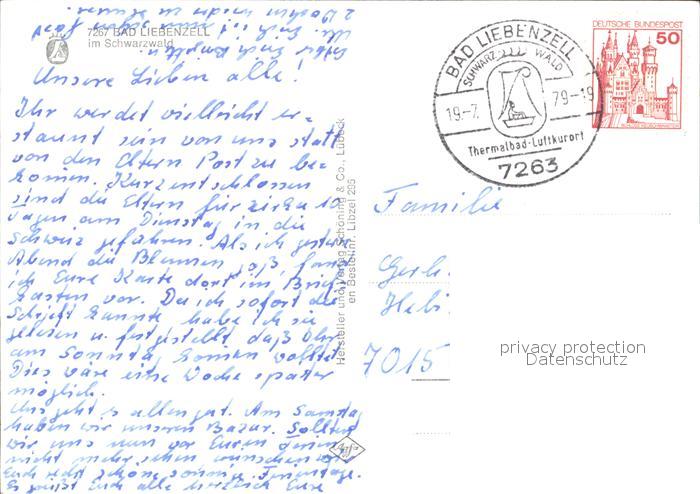 7267 BAD LIEBENZELL
im Schwarzwald
Unsere Lieben alle!
Ihr werdet vielleicht er-
staunt sein von uns statt
von den Eltern Post zu be-
komen. Kurzentschlossen
sind die Eltern für zirka 10
Tagen am Dienstag in die
Schweiz gefahren. Als ich gestern
Abend die Blumen goß, fand
ich Eure Karte dort im Brief-
kasten vor. Da ich sofort die
Schrift kannte habe ich sie
gelesen u. festgestellt daß Ihr
am Sonntag komen wolltet.
Dies wäre eine Woche später
möglich.
Uns geht's allen gut. Am Samstag
haben wir unseren Bazar. Sollten
wir uns nun vor Euren Ferien
nicht mehr sehen wünschen wir
Euch recht schöne sonnige Ferientage.
Es grüßt Euch alle herzlich Eure
Hersteller und Verlag Schöning & Co., Lübeck
Bestellnr. Libzel 295
BAD LIEBENZELL
SCHWARZ WALD
19.-7. 79-19
Thermalbad-Luftkurort
7263
DEUTSCHE BUNDESPOST
50
SCHLOSS NEUSCHWANSTEIN
Familie
Gerh.
7015
privacy protection
Datenschutz